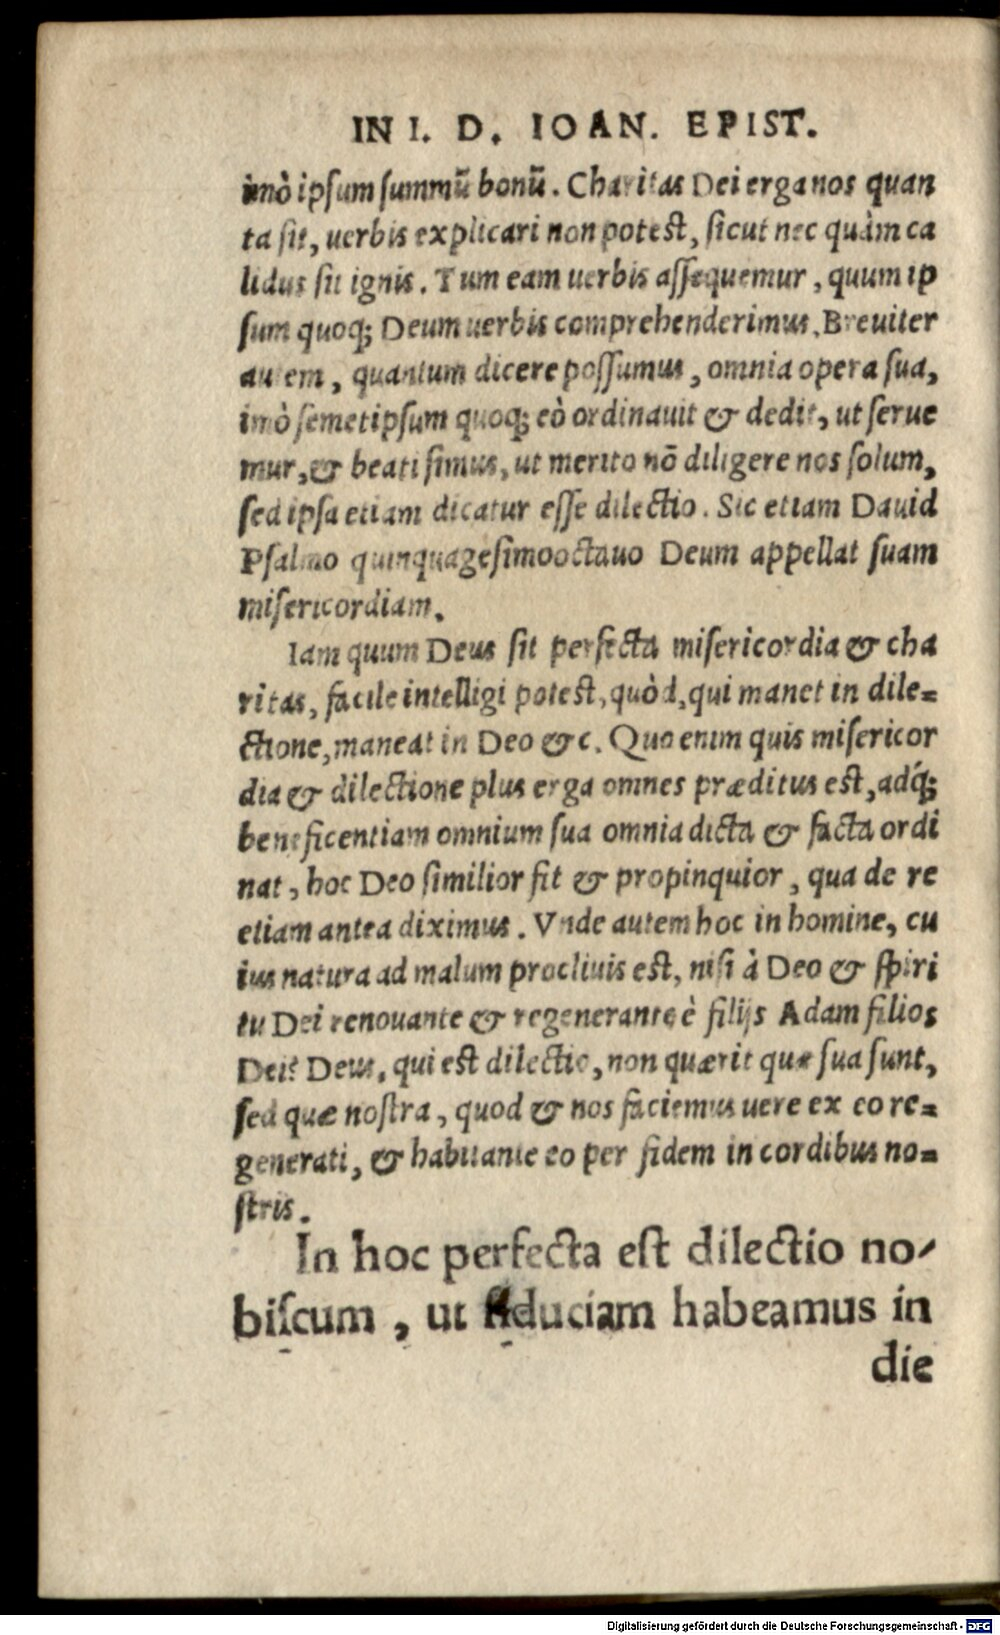 IN I. D. IOAN. EPIST.
imò ipſum ſummū bonū. Charitas Dei erga nos quan
ta ſit, uerbis explicari non poteſt, ſicut nec quàm ca
lidus ſit ignis. Tum eam uerbis aſſequemur, quum ip
ſum quoq; Deum uerbis comprehenderimus. Breuiter
autem, quantum dicere poſſumus, omnia opera ſua,
imò ſemetipſum quoq; eò ordinauit & dedit, ut ſerue
mur, & beati ſimus, ut merito nō diligere nos ſolum,
ſed ipſa etiam dicatur eſſe dilectio. Sic etiam Dauid
Pſalmo quinquageſimooctauo Deum appellat ſuam
miſericordiam.
Iam quum Deus ſit perfecta miſericordia & cha
ritas, facile intelligi poteſt, quòd, qui manet in dile=
ctione, maneat in Deo &c. Quo enim quis miſericor
dia & dilectione plus erga omnes præditus eſt, adq́;
beneficentiam omnium ſua omnia dicta & facta ordi
nat, hoc Deo ſimilior fit & propinquior, qua de re
etiam antea diximus. Vnde autem hoc in homine, cu
ius natura ad malum procliuis eſt, niſi à Deo & ſpiri
tu Dei renouante & regenerante è filijs Adam filios
Dei? Deus, qui eſt dilectio, non quærit quæ ſua ſunt,
ſed quæ noſtra, quod & nos faciemus uere ex eo re=
generati, & habitante eo per fidem in cordibus no=
ſtris.
In hoc perfecta eſt dilectio no-
biſcum, ut fiduciam habeamus in
die
Digitalisierung gefördert durch die Deutsche Forschungsgemeinschaft - DFG